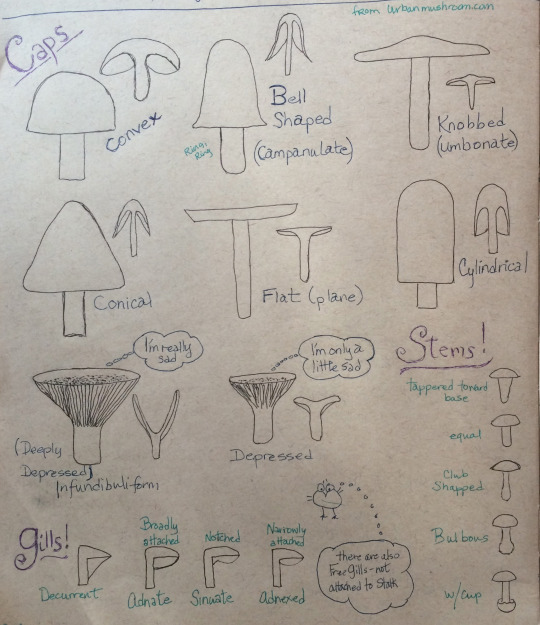 from Urbanmushroom.com
Caps
Convex
Bell
Shaped
(Campanulate)
Ring,
Ring
Knobbed
(umbonate)
Conical
Flat (plane)
Cylindrical
I'm really
sad
I'm only a
little sad
(Deeply
Depressed)
Infundibuliform
Depressed
Stems!
tappered toward
base
equal
Club
Shapped
Bulbous
w/cup
Gills!
Decurrent
Broadly
attached
Adnate
Notched
Sinuate
Narrowly
attached
Adnexed
there are also
Free gills - not
attached to Stalk